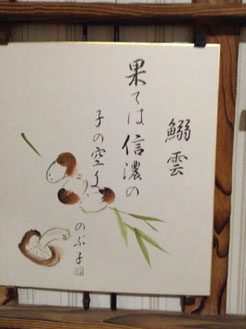 鰯雲
果ては信濃の
子の空へ
のぶ子